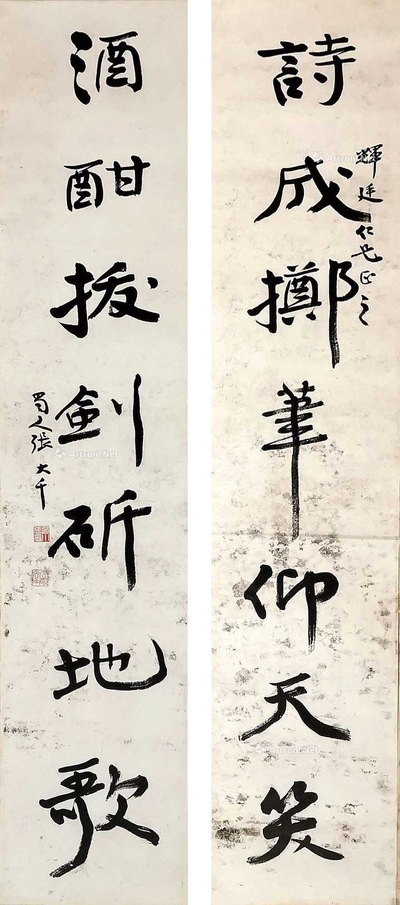 詩成擲筆仰天笑
輝廷仁兄正之
酒酣拔劍斫地歌
蜀人張大千
Artron.Net